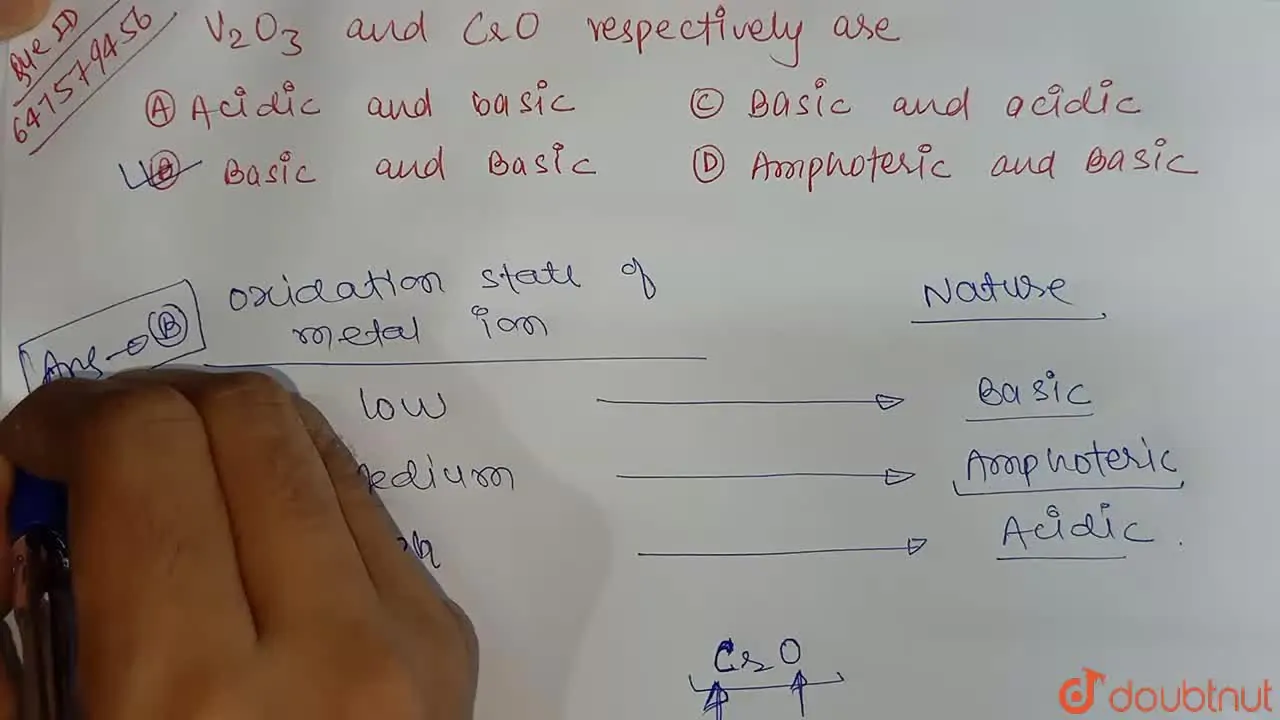 V₂O₃ and CrO respectively are
Que ID
647579456
Ⓐ Acidic and basic
Ⓒ Basic and acidic
Ⓑ Basic and Basic
Ⓓ Amphoteric and Basic
oxidation state of
metal ion
Nature
Ans → Ⓑ
low → Basic
medium → Amphoteric
→ Acidic.
CrO
doubtnut